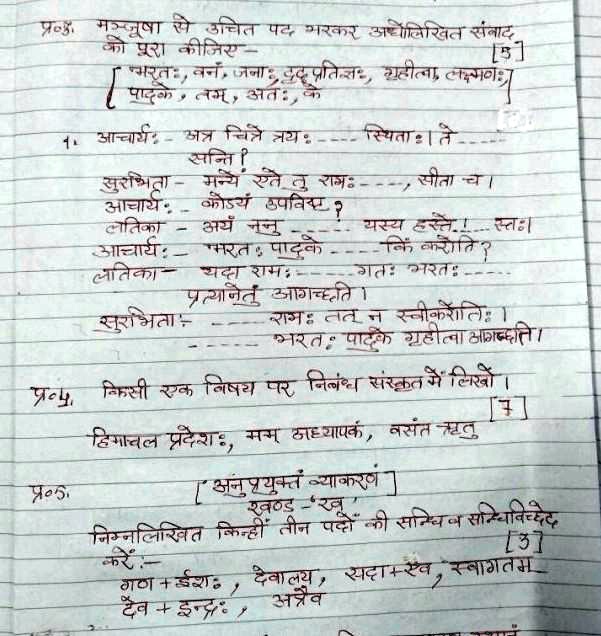 प्र०3. मञ्जूषा से उचित पद भरकर अधोलिखित संवाद
को पूरा कीजिए— [5]
[भरतः, वनं, जनाः, दृढ़प्रतिज्ञः, गृहीत्वा, लक्ष्मणः,
पादुके, तम्, अतः, के]
1. आचार्यः - अत्र चित्रे त्रयः ---- स्थिताः। ते -----
सन्ति?
सुरभिता - मन्ये एते तु रामः ----, सीता च।
आचार्यः - कोऽयं उपविष्ट?
लतिका - अयं ननु ------ यस्य हस्ते ---- स्तः।
आचार्यः - भरतः पादुके ----- किं करोति?
लतिका - यदा रामः ------ गतः भरतः -----
प्रत्यानेतुं आगच्छति।
सुरभिताः - ------ रामः तत् न स्वीकरोतिः।
------ भरतः पादुके गृहीत्वा आगच्छति।
प्र०4. किसी एक विषय पर निबंध संस्कृत में लिखो।
[7]
हिमाचल प्रदेशः, मम् अध्यापकं, वसंत ऋतु
प्र०5. [अनुप्रयुक्तं व्याकरणं]
खण्ड - 'ख'
निम्नलिखित किन्हीं तीन पदों की सन्धि व सन्धिविच्छेद
करें:— [3]
गण + ईशः, देवालय, सदा + एव, स्वागतम
देव + इन्द्रः, अत्रैव